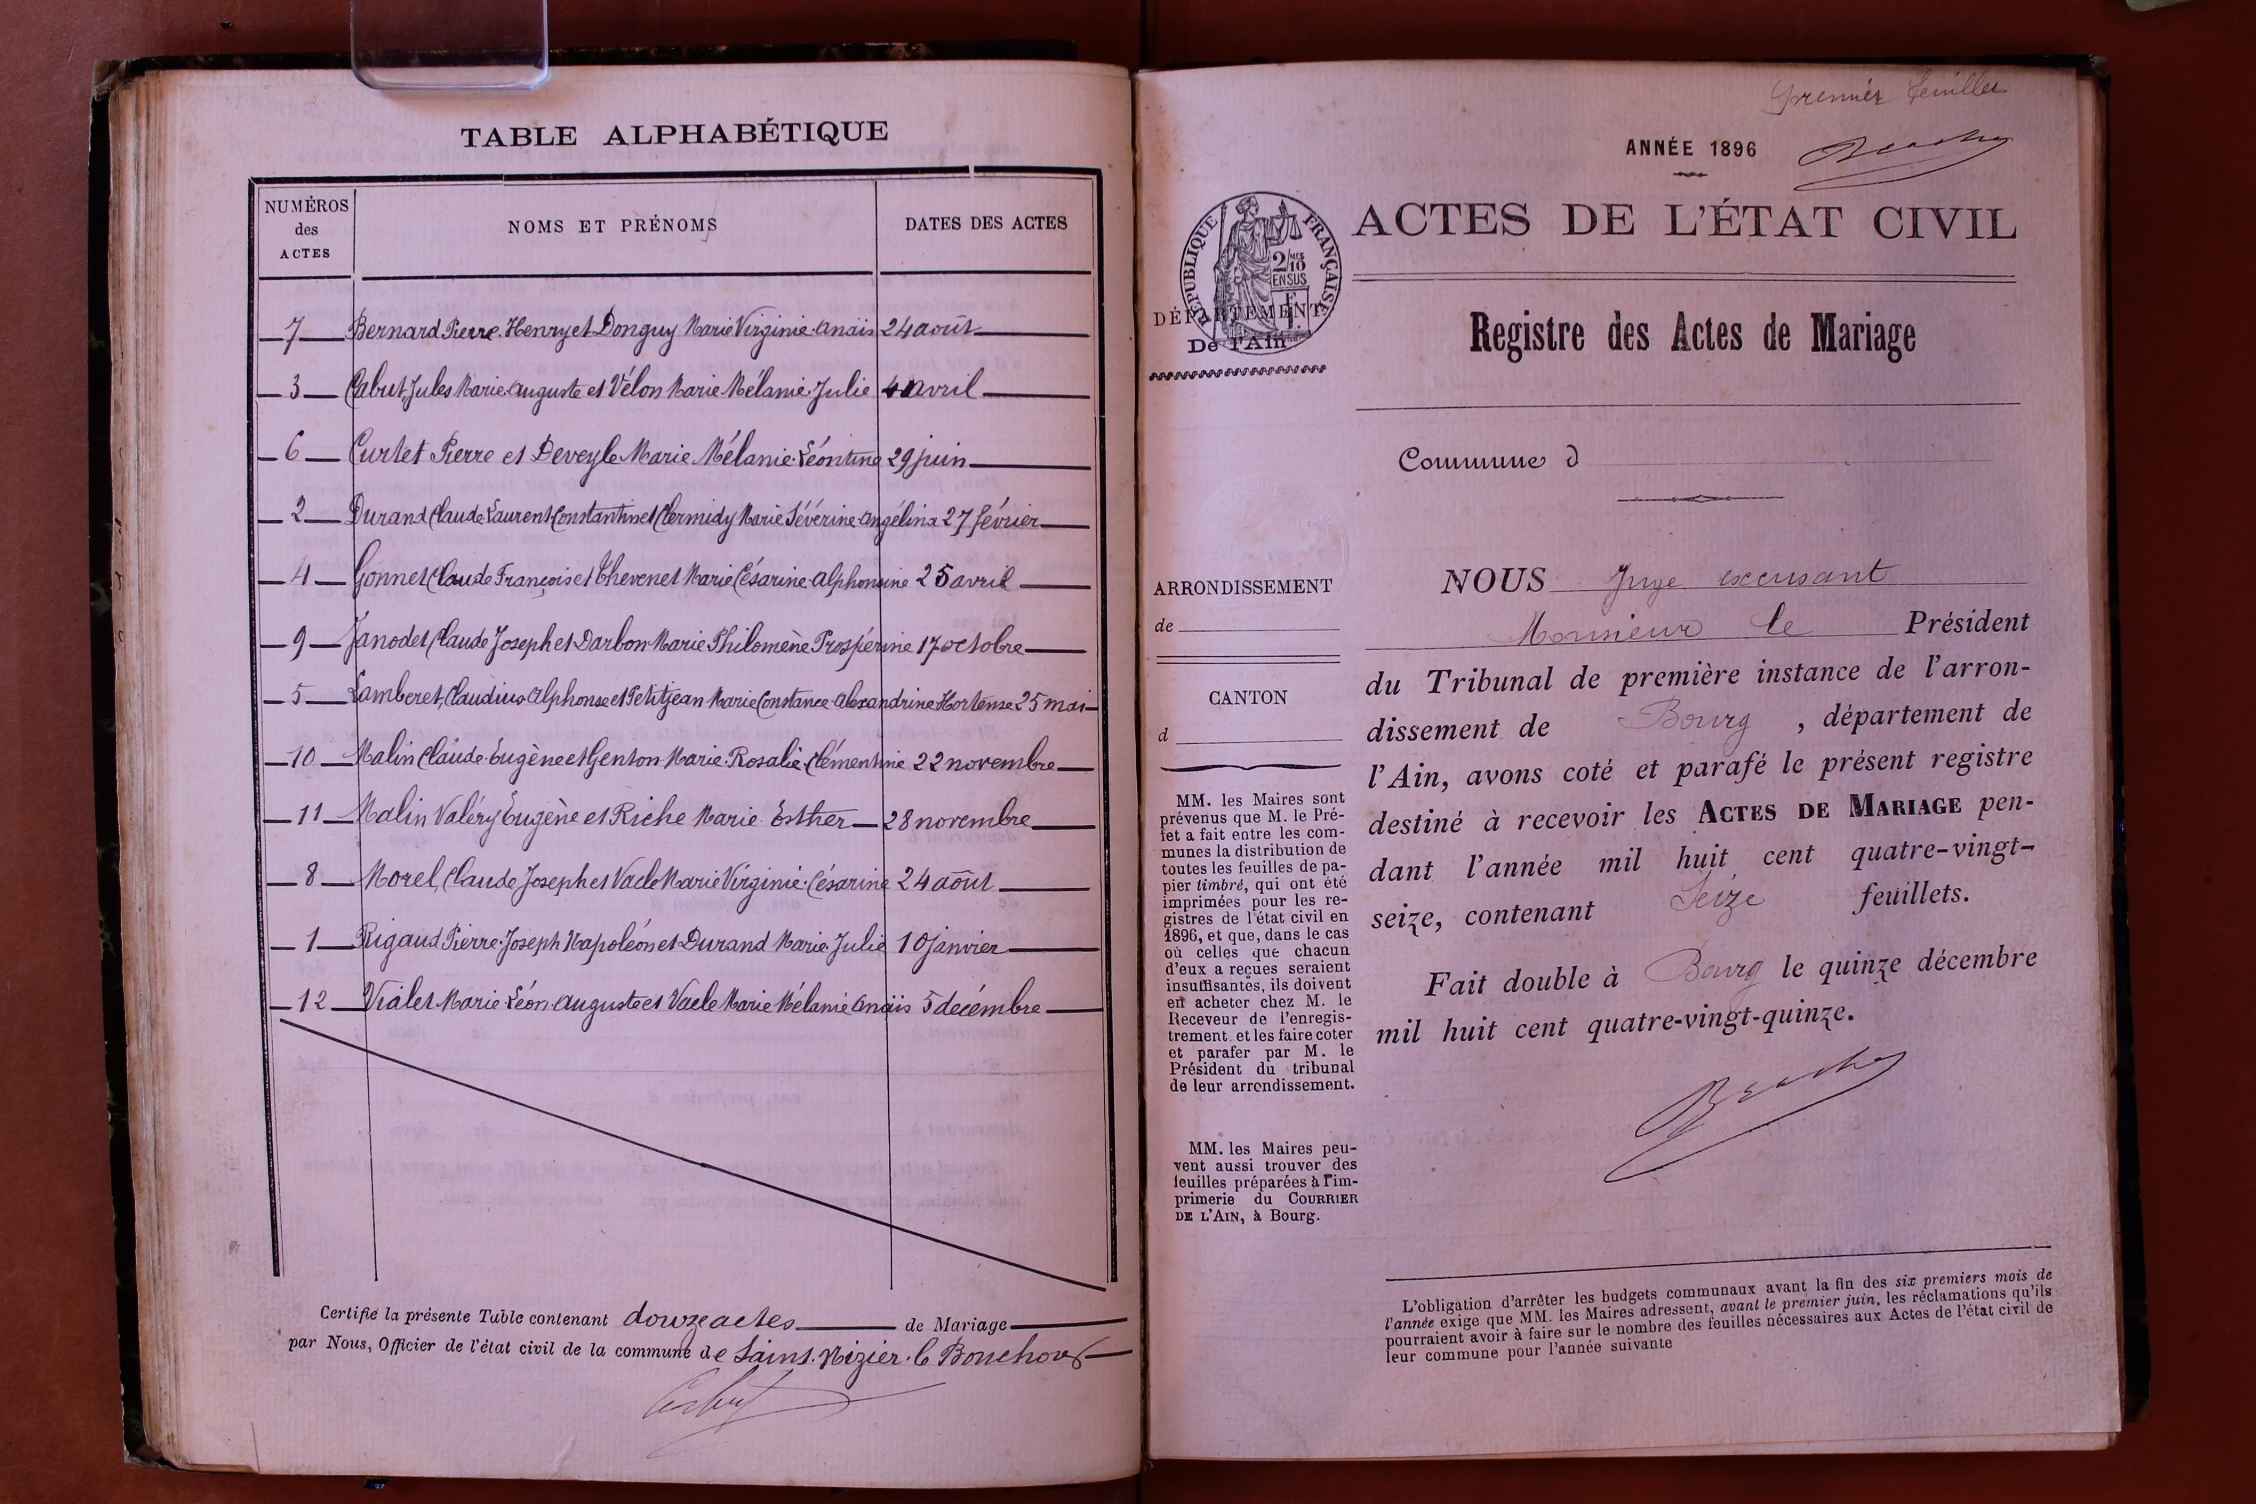 TABLE ALPHABÉTIQUE
NUMÉROS
des
ACTES
NOMS ET PRÉNOMS
DATES DES ACTES
7 Bernard Pierre Henry et Donguy Marie Virginie Anaïs 24 août
3 Cabut Jules Marie Auguste et Vélon Marie Mélanie Julie 4 avril
6 Curtet Pierre et Deveyle Marie Mélanie Léontine 29 juin
2 Durand Claude Laurent Constantin et Clermidy Marie Séverine Angélina 27 février
4 Gonnet Claude François et Thevenet Marie Césarine Alphonsine 25 avril
9 Janodet Claude Joseph et Darbon Marie Philomène Prospérine 17 octobre
5 Lamberet Claudius Alphonse et Petitjean Marie Constance Alexandrine Hortense 25 mai
10 Malin Claude Eugène et Genton Marie Rosalie Clémentine 22 novembre
11 Malin Valéry Eugène et Riche Marie Esther 28 novembre
8 Morel Claude Joseph et Vacle Marie Virginie Césarine 24 août
1 Rigaud Pierre Joseph Napoléon et Durand Marie Julie 10 janvier
12 Vialet Marie Léon Auguste et Vacle Marie Mélanie Anaïs 5 décembre
Certifié la présente Table contenant douze actes de Mariage
par Nous, Officier de l'état civil de la commune de Saint-Nizier-le Bouchoux
Premier feuillet
ANNÉE 1896
ACTES DE L'ÉTAT CIVIL
RÉPUBLIQUE FRANÇAISE
2/10
EN SUS
DÉPARTEMENT
De l'Ain
Registre des Actes de Mariage
Commune d
ARRONDISSEMENT
de
CANTON
d
MM. les Maires sont
prévenus que M. le Pré-
fet a fait entre les com-
munes la distribution de
toutes les feuilles de pa-
pier timbré, qui ont été
imprimées pour les re-
gistres de l'état civil en
1896, et que, dans le cas
où celles que chacun
d'eux a reçues seraient
insuffisantes, ils doivent
en acheter chez M. le
Receveur de l'enregis-
trement et les faire coter
et parafer par M. le
Président du tribunal
de leur arrondissement.
MM. les Maires peu-
vent aussi trouver des
feuilles préparées à l'im-
primerie du COURRIER
DE L'AIN, à Bourg.
NOUS Juge excusant
Monsieur le Président
du Tribunal de première instance de l'arron-
dissement de Bourg , département de
l'Ain, avons coté et parafé le présent registre
destiné à recevoir les ACTES DE MARIAGE pen-
dant l'année mil huit cent quatre-vingt-
seize, contenant Seize feuillets.
Fait double à Bourg le quinze décembre
mil huit cent quatre-vingt-quinze.
L'obligation d'arrêter les budgets communaux avant la fin des six premiers mois de
l'année exige que MM. les Maires adressent, avant le premier juin, les réclamations qu'ils
pourraient avoir à faire sur le nombre des feuilles nécessaires aux Actes de l'état civil de
leur commune pour l'année suivante